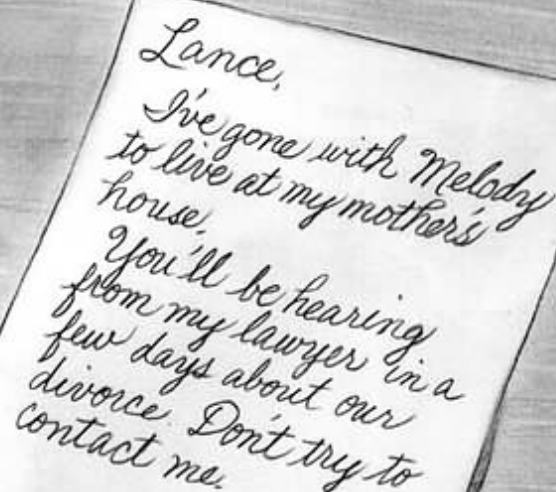 Lance,
I've gone with Melody
to live at my mother's
house.
You'll be hearing
from my lawyer in a
few days about our
divorce. Don't try to
contact me.